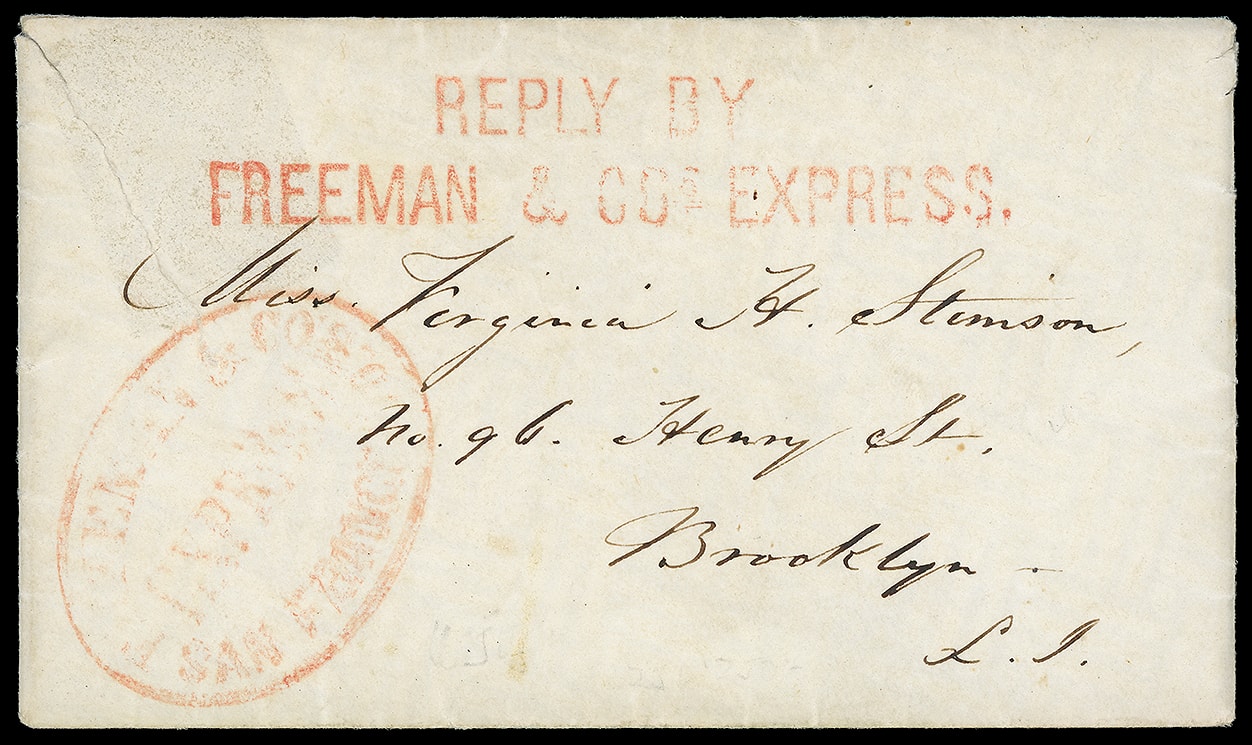 REPLY BY
FREEMAN & COS EXPRESS.
Miss. Virginia H. Stimson,
No. 96. Henry St.
Brooklyn -
L. I.
& CO'S
SAN FRANCI